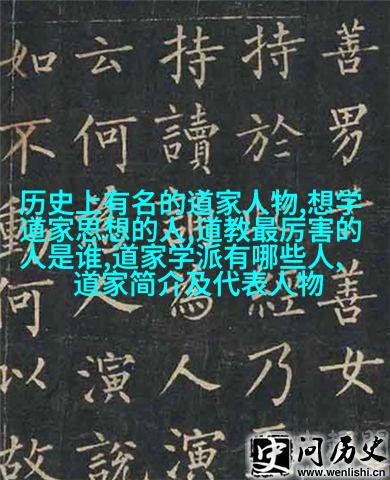 善男善女
持於經乃
持讀為人演
云何人演說
如不動何以故
历史上有名的道家人物,想学
道家思想的人,道教最厉害的
人是谁,道家学派有哪些人,
道家简介及代表人物
史问历史
www.wenlishi.cn